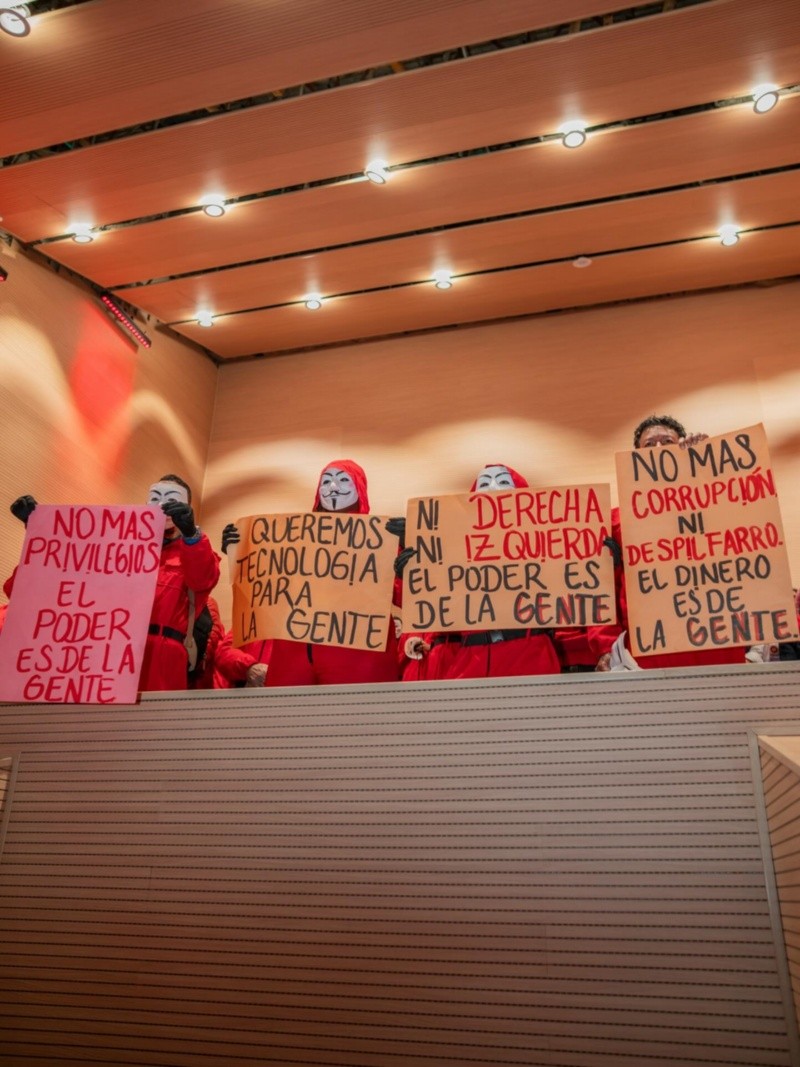 NO MAS
PRIVILEGIOS
EL
PODER
ES DE LA
GENTE
QUEREMOS
TECNOLOGIA
PARA
LA GENTE
NI DERECHA
NI IZQUIERDA
EL PODER ES
DE LA GENTE
NO MAS
CORRUPCIÓN
NI
DESPILFARRO.
EL DINERO
ES DE
LA GENTE.